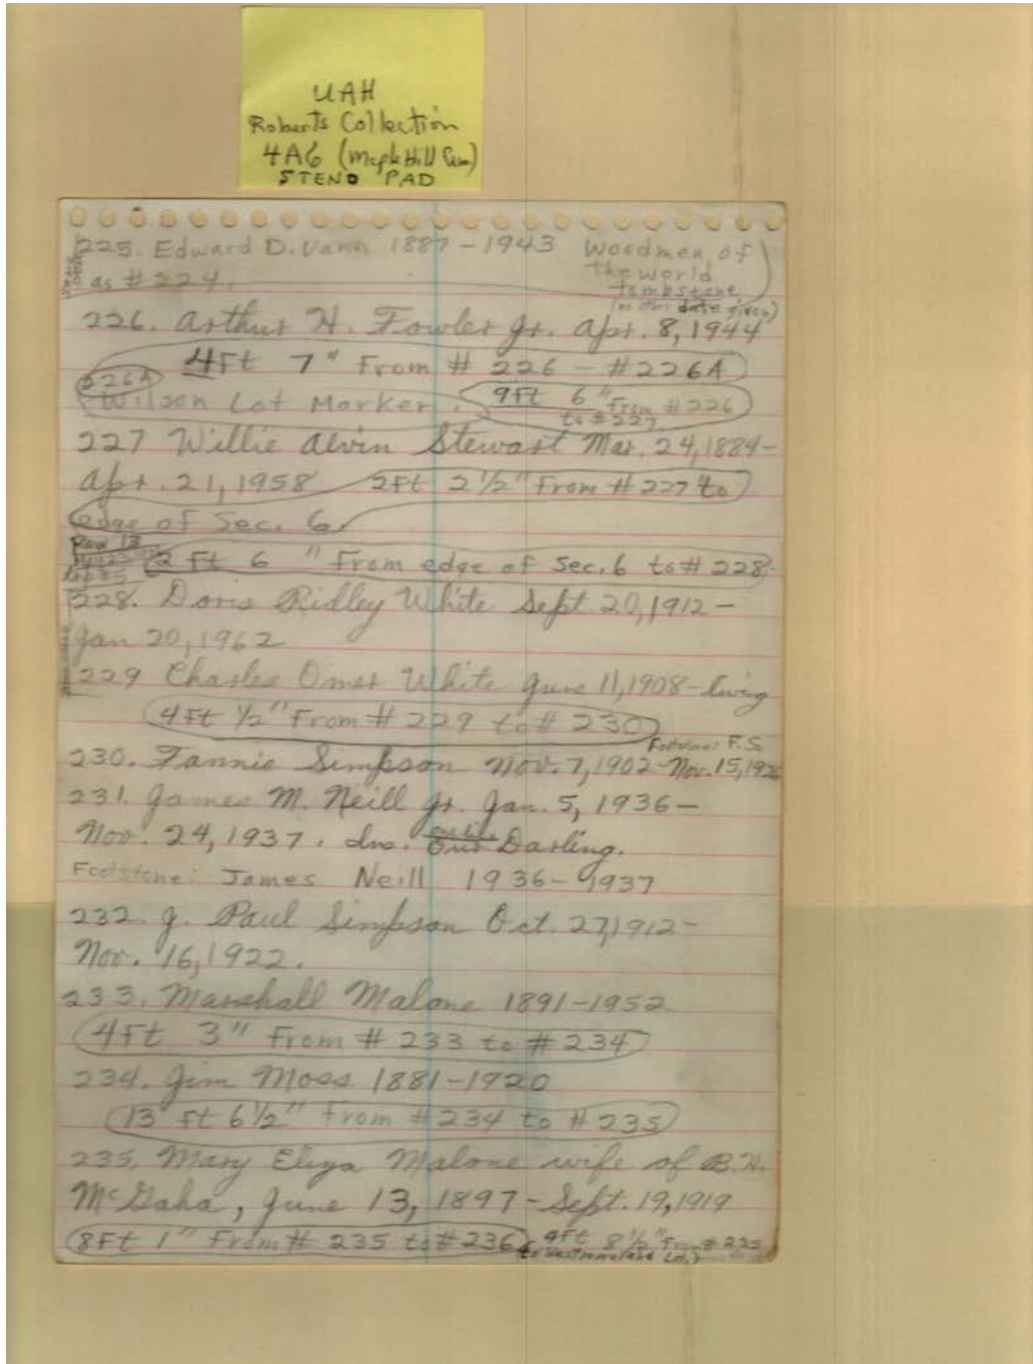 UAH
Roberts Collection
4A6 (Maple Hill Cem)
STENO PAD
225. Edward D. Vann 1887-1943 Woodmen of
the world
tombstone
(no other date given)
as #224.
226. Arthur H. Fowler Jr. Apr. 8, 1944
4Ft 7" From # 226 - #226A
226A
Wilson Lot Marker.
9Ft 6" From #226
to #227
227 Willie Alvin Stewart Mar. 24, 1884-
Apr. 21, 1958 2Ft 2 1/2" From #227 to
edge of Sec. 6
Row 13
2 Ft 6 " From edge of Sec. 6 to # 228.
228. Doris Ridley White Sept. 20, 1912-
Jan 20, 1962
229 Charles Omer White June 11, 1908-living
4Ft 1/2" From # 229 to # 230
Footstone: F.S.
230. Fannie Simpson Nov. 7, 1902-Nov. 15, 192
231. James M. Neill Jr. Jan. 5, 1936-
Nov. 24, 1937. Ins. Our Darling.
Footstone: James Neill 1936-1937
232. J. Paul Simpson Oct. 27, 1912-
Nov. 16, 1922.
233. Marshall Malone 1891-1952
4Ft 3" From # 233 to # 234
234. Jim Moss 1881-1920
13 ft 6 1/2" From #234 to #235
235. Mary Eliza Malone wife of B.H.
McGaha, June 13, 1897-Sept. 19, 1919
8Ft 1" From # 235 to # 236
4Ft 8 1/2" From # 235
to Westmoreland Ln.